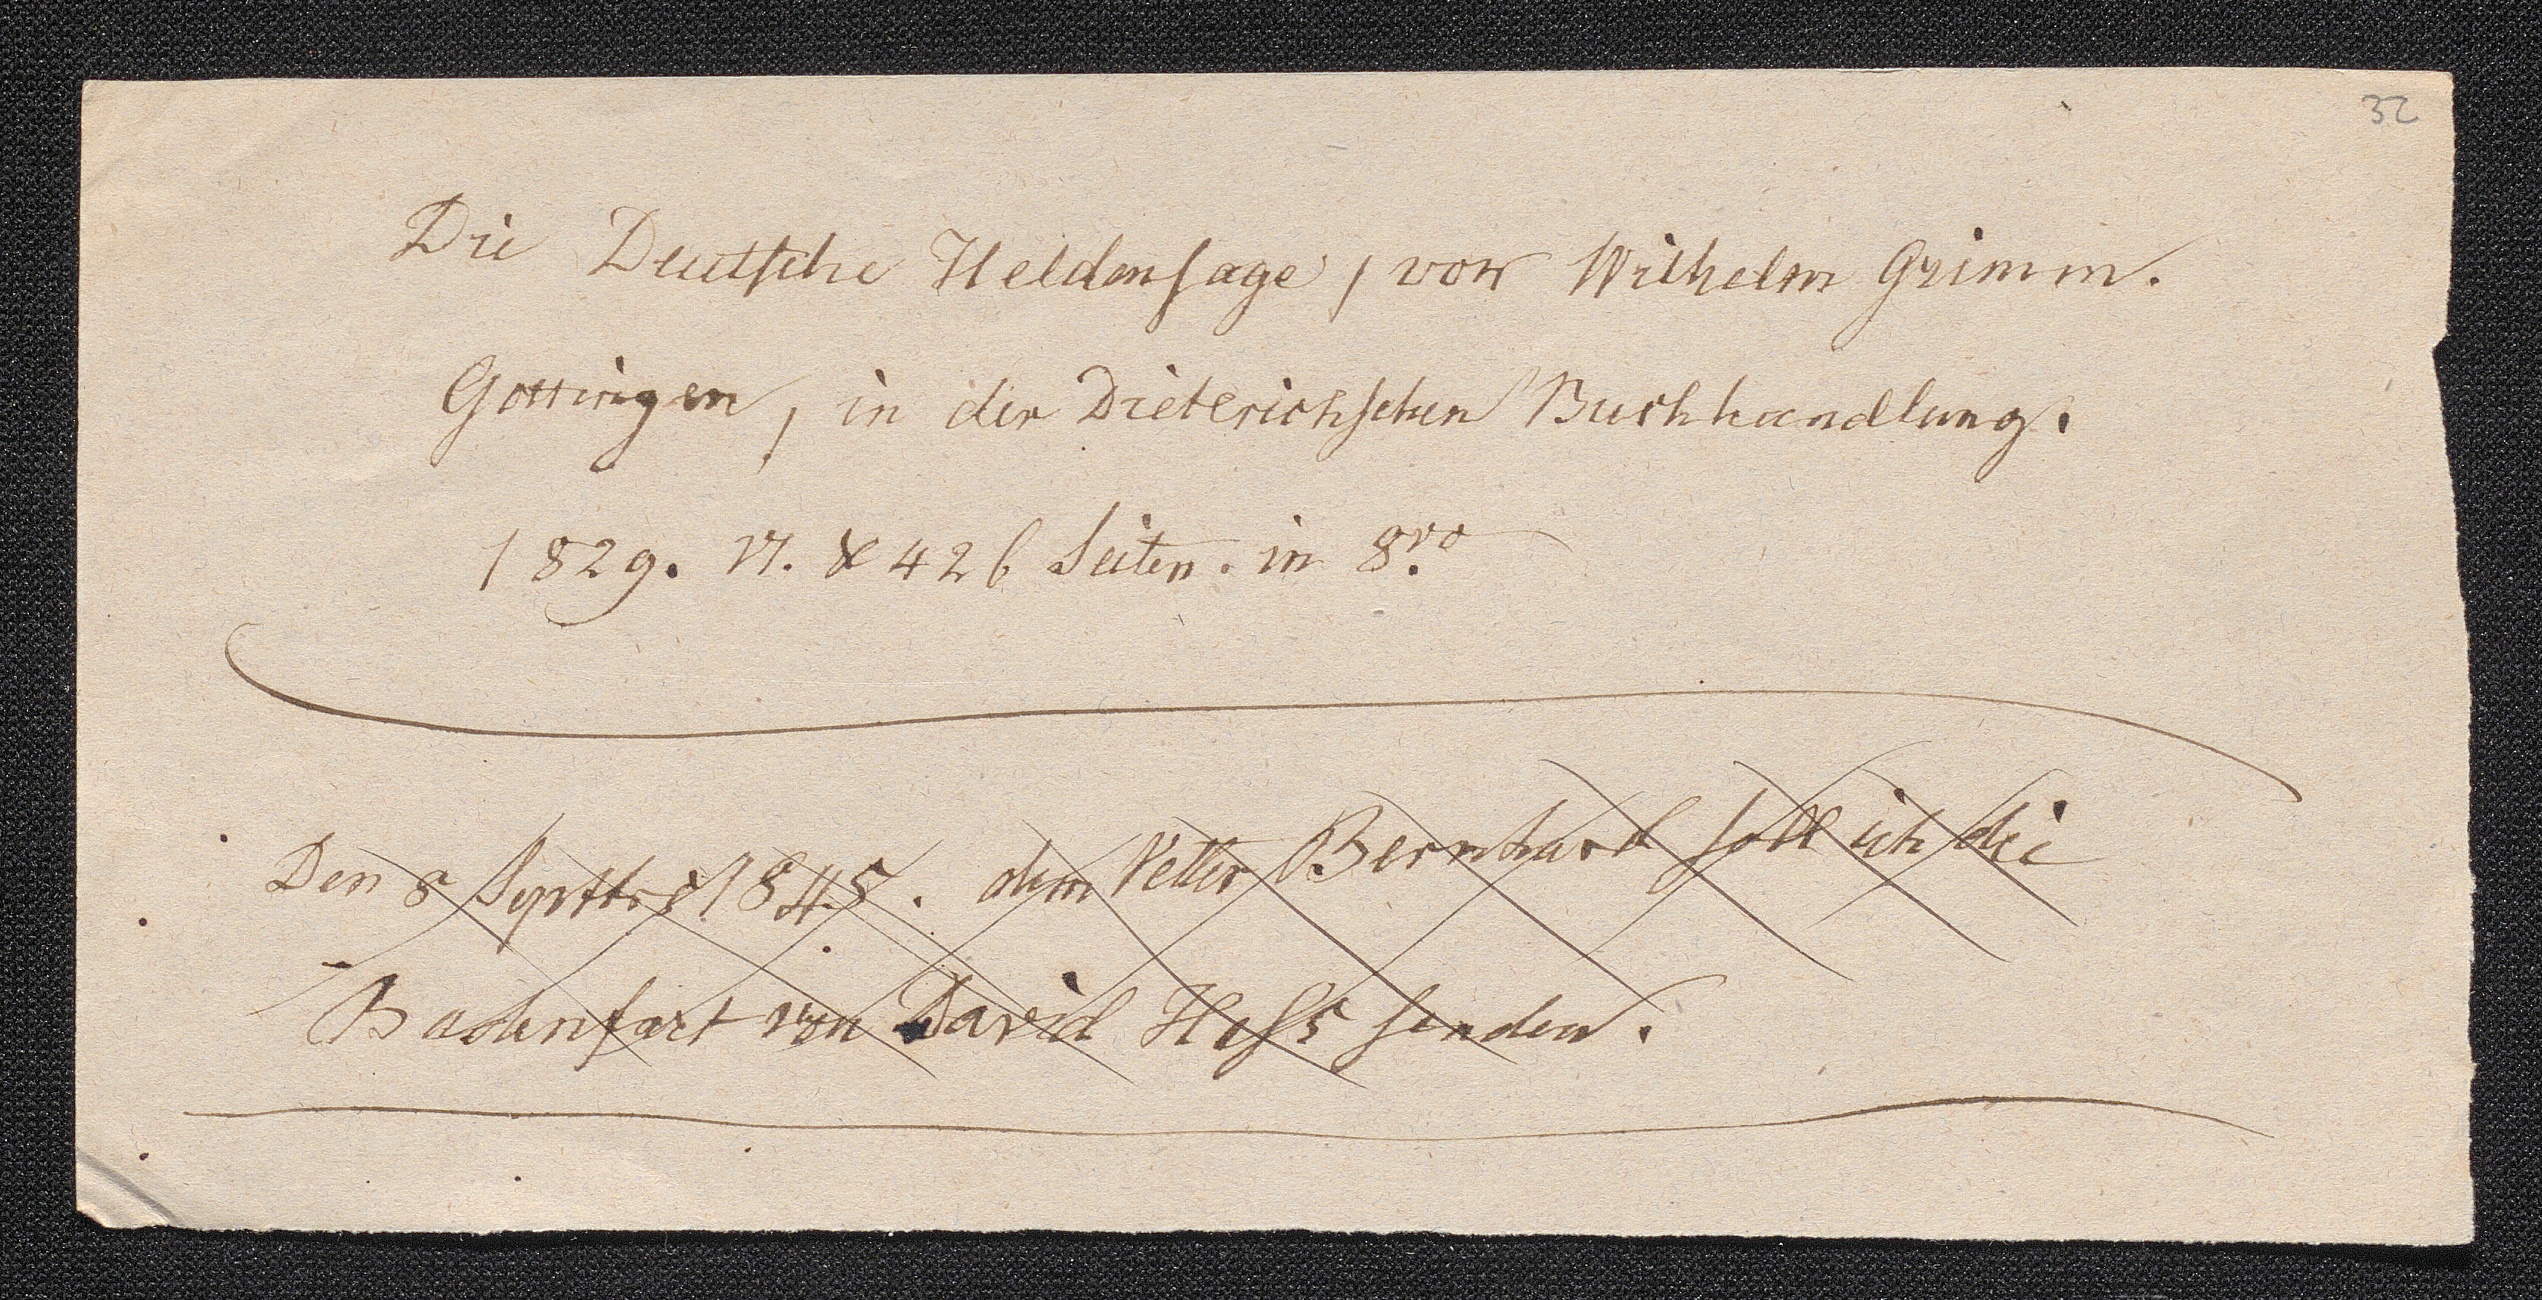 32
Die Deutsche Heldensage, von Wilhelm Grimm.
Gottingen, in der Dieterichschen Buchhandlung.
1829. VI. & 426 Seiten. in 8.vo
Den 8 Septbre 1845. dem Vetter Bernhard soll ich die
Badenfart von David Hess senden.